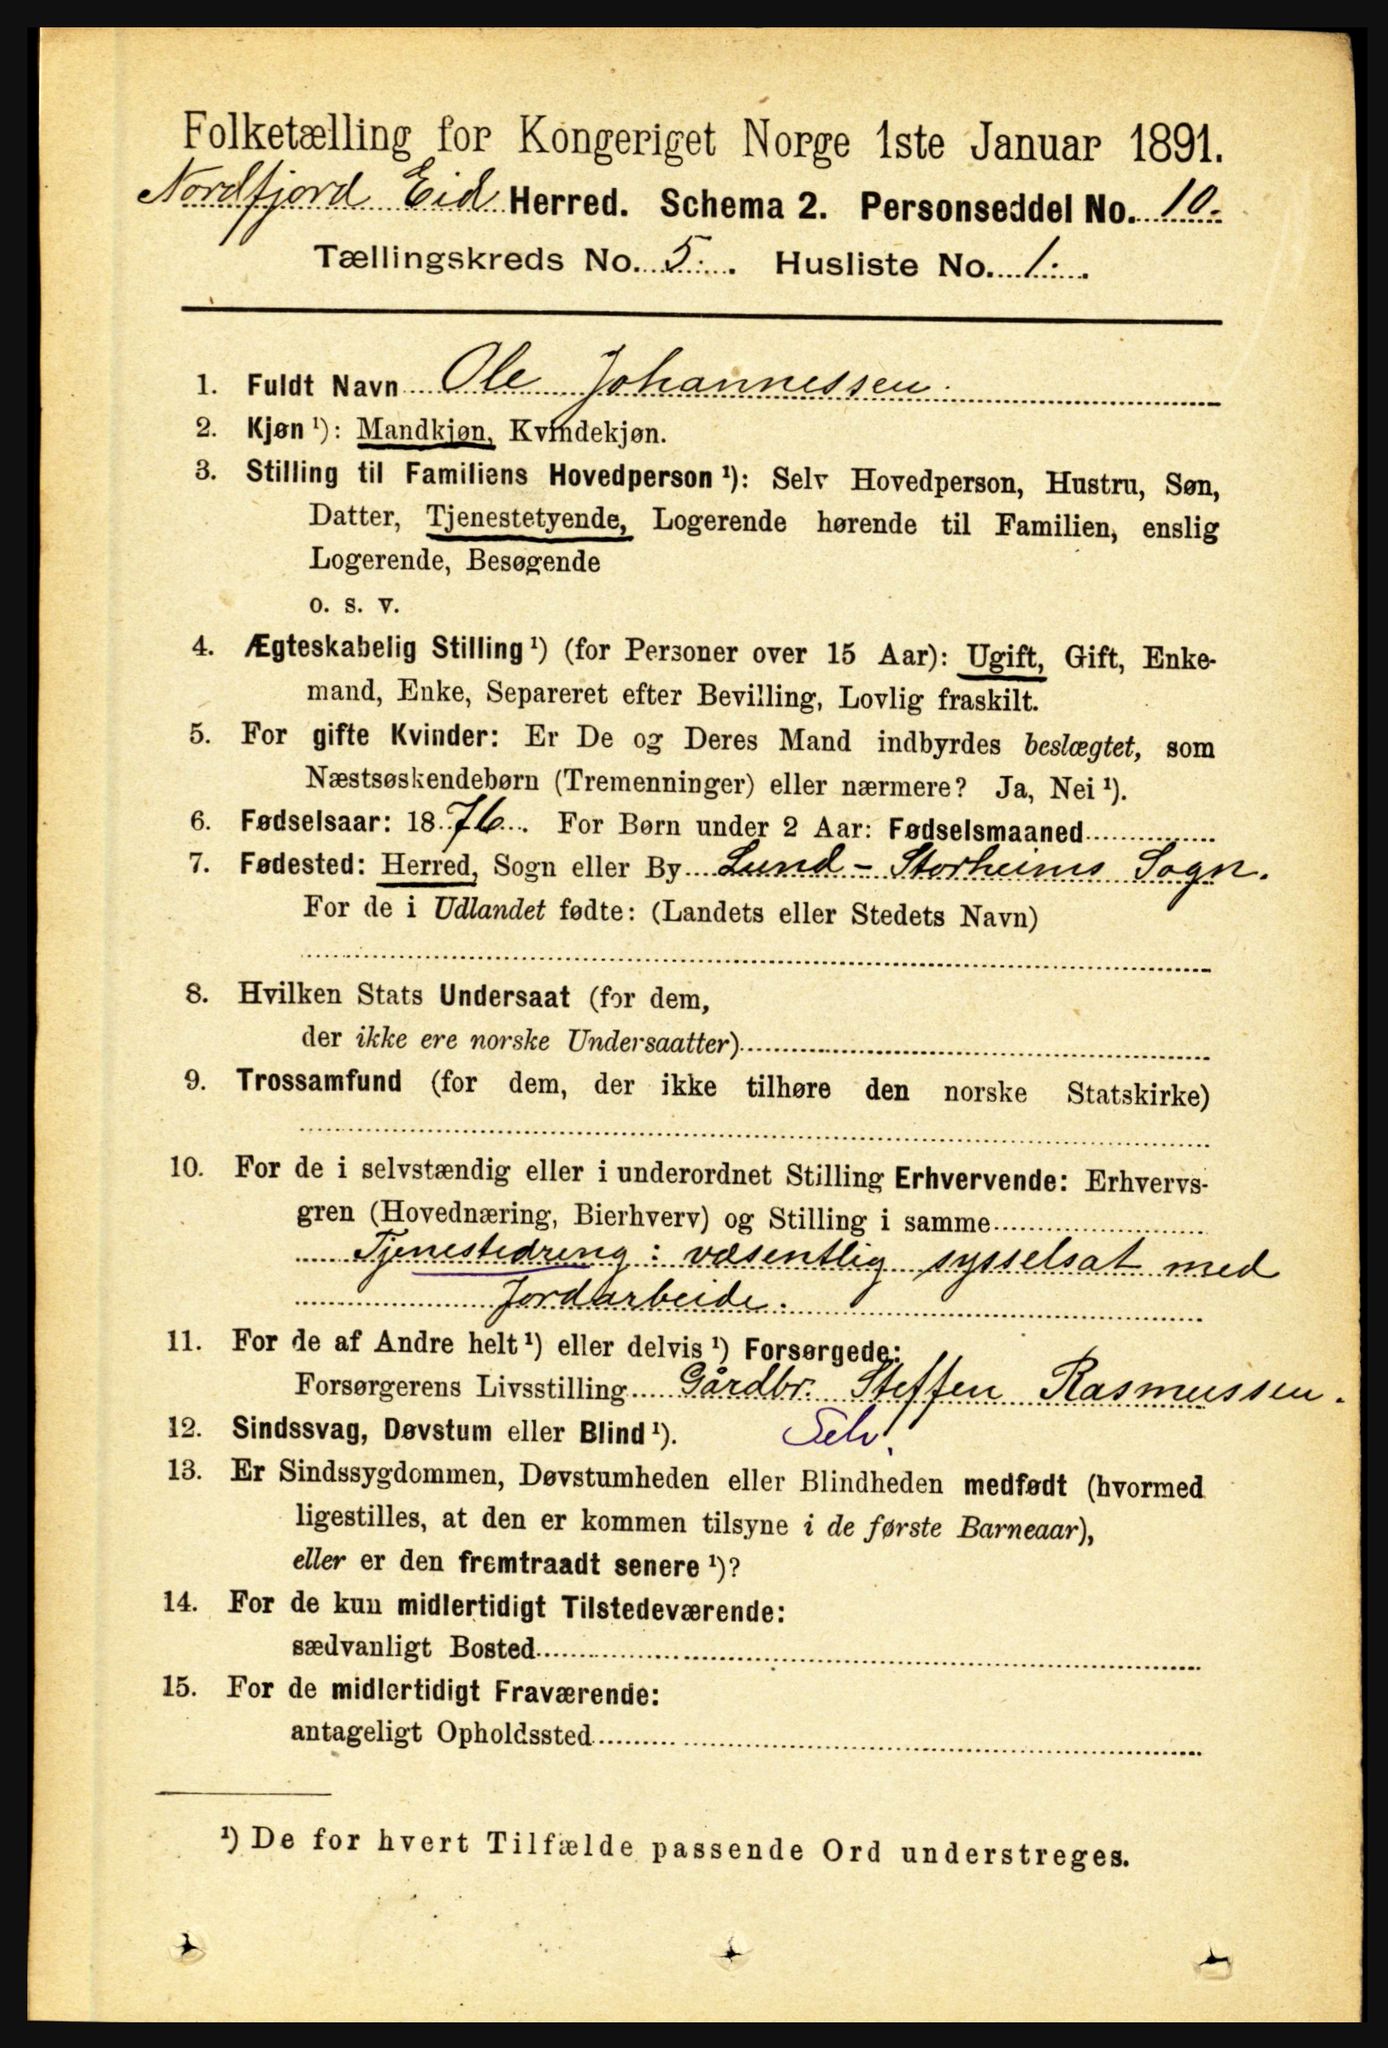 Folketælling for Kongeriget Norge 1ste Januar 1891.
Nordfjord Eid Herred. Schema 2. Personseddel No. 10.
Tællingskreds No. 5. Husliste No. 1.
1. Fuldt Navn Ole Johannessen.
2. Kjøn ¹): Mandkjøn, Kvindekjøn.
3. Stilling til Familiens Hovedperson ¹): Selv Hovedperson, Hustru, Søn,
Datter, Tjenestetyende, Logerende hørende til Familien, enslig
Logerende, Besøgende
o. s. v.
4. Ægteskabelig Stilling ¹) (for Personer over 15 Aar): Ugift, Gift, Enke-
mand, Enke, Separeret efter Bevilling, Lovlig fraskilt.
5. For gifte Kvinder: Er De og Deres Mand indbyrdes beslægtet, som
Næstsøskendebørn (Tremenninger) eller nærmere? Ja, Nei ¹).
6. Fødselsaar: 1876. For Børn under 2 Aar: Fødselsmaaned
7. Fødested: Herred, Sogn eller By Lund - Storheims Sogn.
For de i Udlandet fødte: (Landets eller Stedets Navn)
8. Hvilken Stats Undersaat (for dem,
der ikke ere norske Undersaatter)
9. Trossamfund (for dem, der ikke tilhøre den norske Statskirke)
10. For de i selvstændig eller i underordnet Stilling Erhvervende: Erhvervs-
gren (Hovednæring, Bierhverv) og Stilling i samme
Tjenestedreng: væsentlig sysselsat med
Jordarbeide.
11. For de af Andre helt ¹) eller delvis ¹) Forsørgede:
Forsørgerens Livsstilling Gårdbr. Steffen Rasmussen.
12. Sindssvag, Døvstum eller Blind ¹). Selv.
13. Er Sindssygdommen, Døvstumheden eller Blindheden medfødt (hvormed
ligestilles, at den er kommen tilsyne i de første Barneaar),
eller er den fremtraadt senere ¹)?
14. For de kun midlertidigt Tilstedeværende:
sædvanligt Bosted
15. For de midlertidigt Fraværende:
antageligt Opholdssted
¹) De for hvert Tilfælde passende Ord understreges.